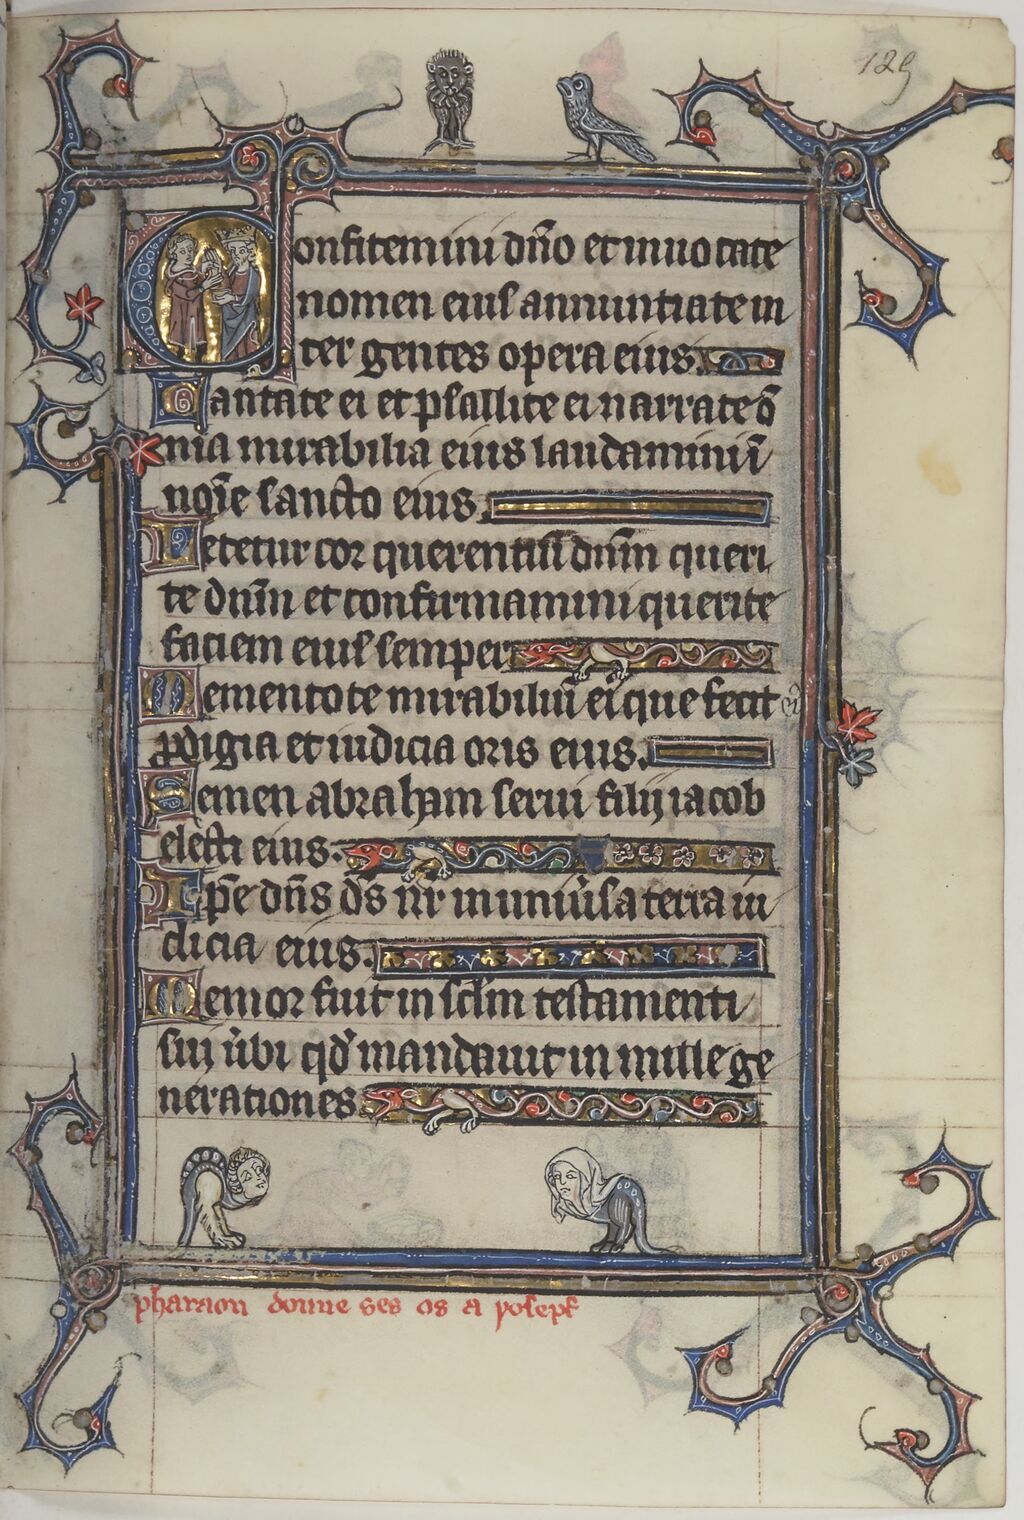 129
Confitemini dño et inuocate
nomen eius annuntiate in
ter gentes opera eius.
Cantate ei et psallite ei narrate õ
nia mirabilia eius laudaminin̄
noīe sancto eius.
Letetur cor querentiū dn̄m queri
te dn̄m et confirmamini querite
faciem eius semper
Mementote mirabiliū ei que fecit
ꝓdigia et iudicia oris eius.
Semen abraham serui filij iacob
electi eius.
Ipẽ dñs d̄s nr̄ in uniũsa terra iu
dicia eius.
Memor fuit in sc̄lm testamenti
sui ũbi qd̄ mandauit in mille ge
nerationes
pharaon donne ses os a yoseph